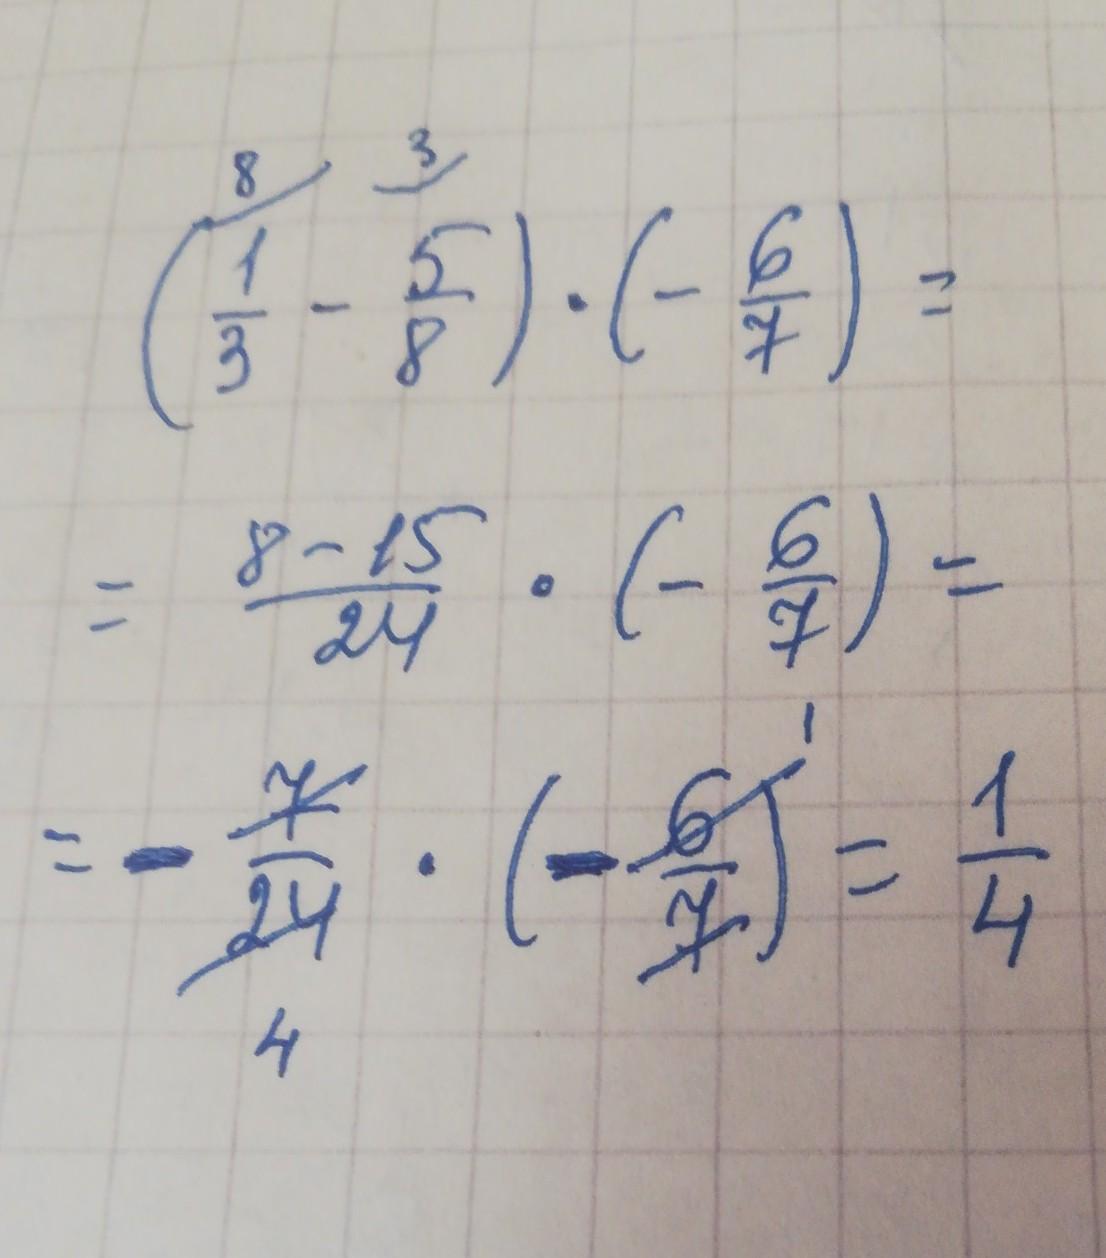 8 3
(1/3 - 5/8) · (- 6/7) =
= 8 - 15/24 · (- 6/7) =
1
= - 7/24 · (- 6/7) = 1/4
4